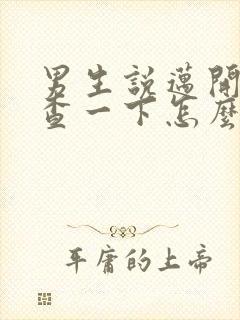 男生說邁開
查一下怎麼
平庸的上帝